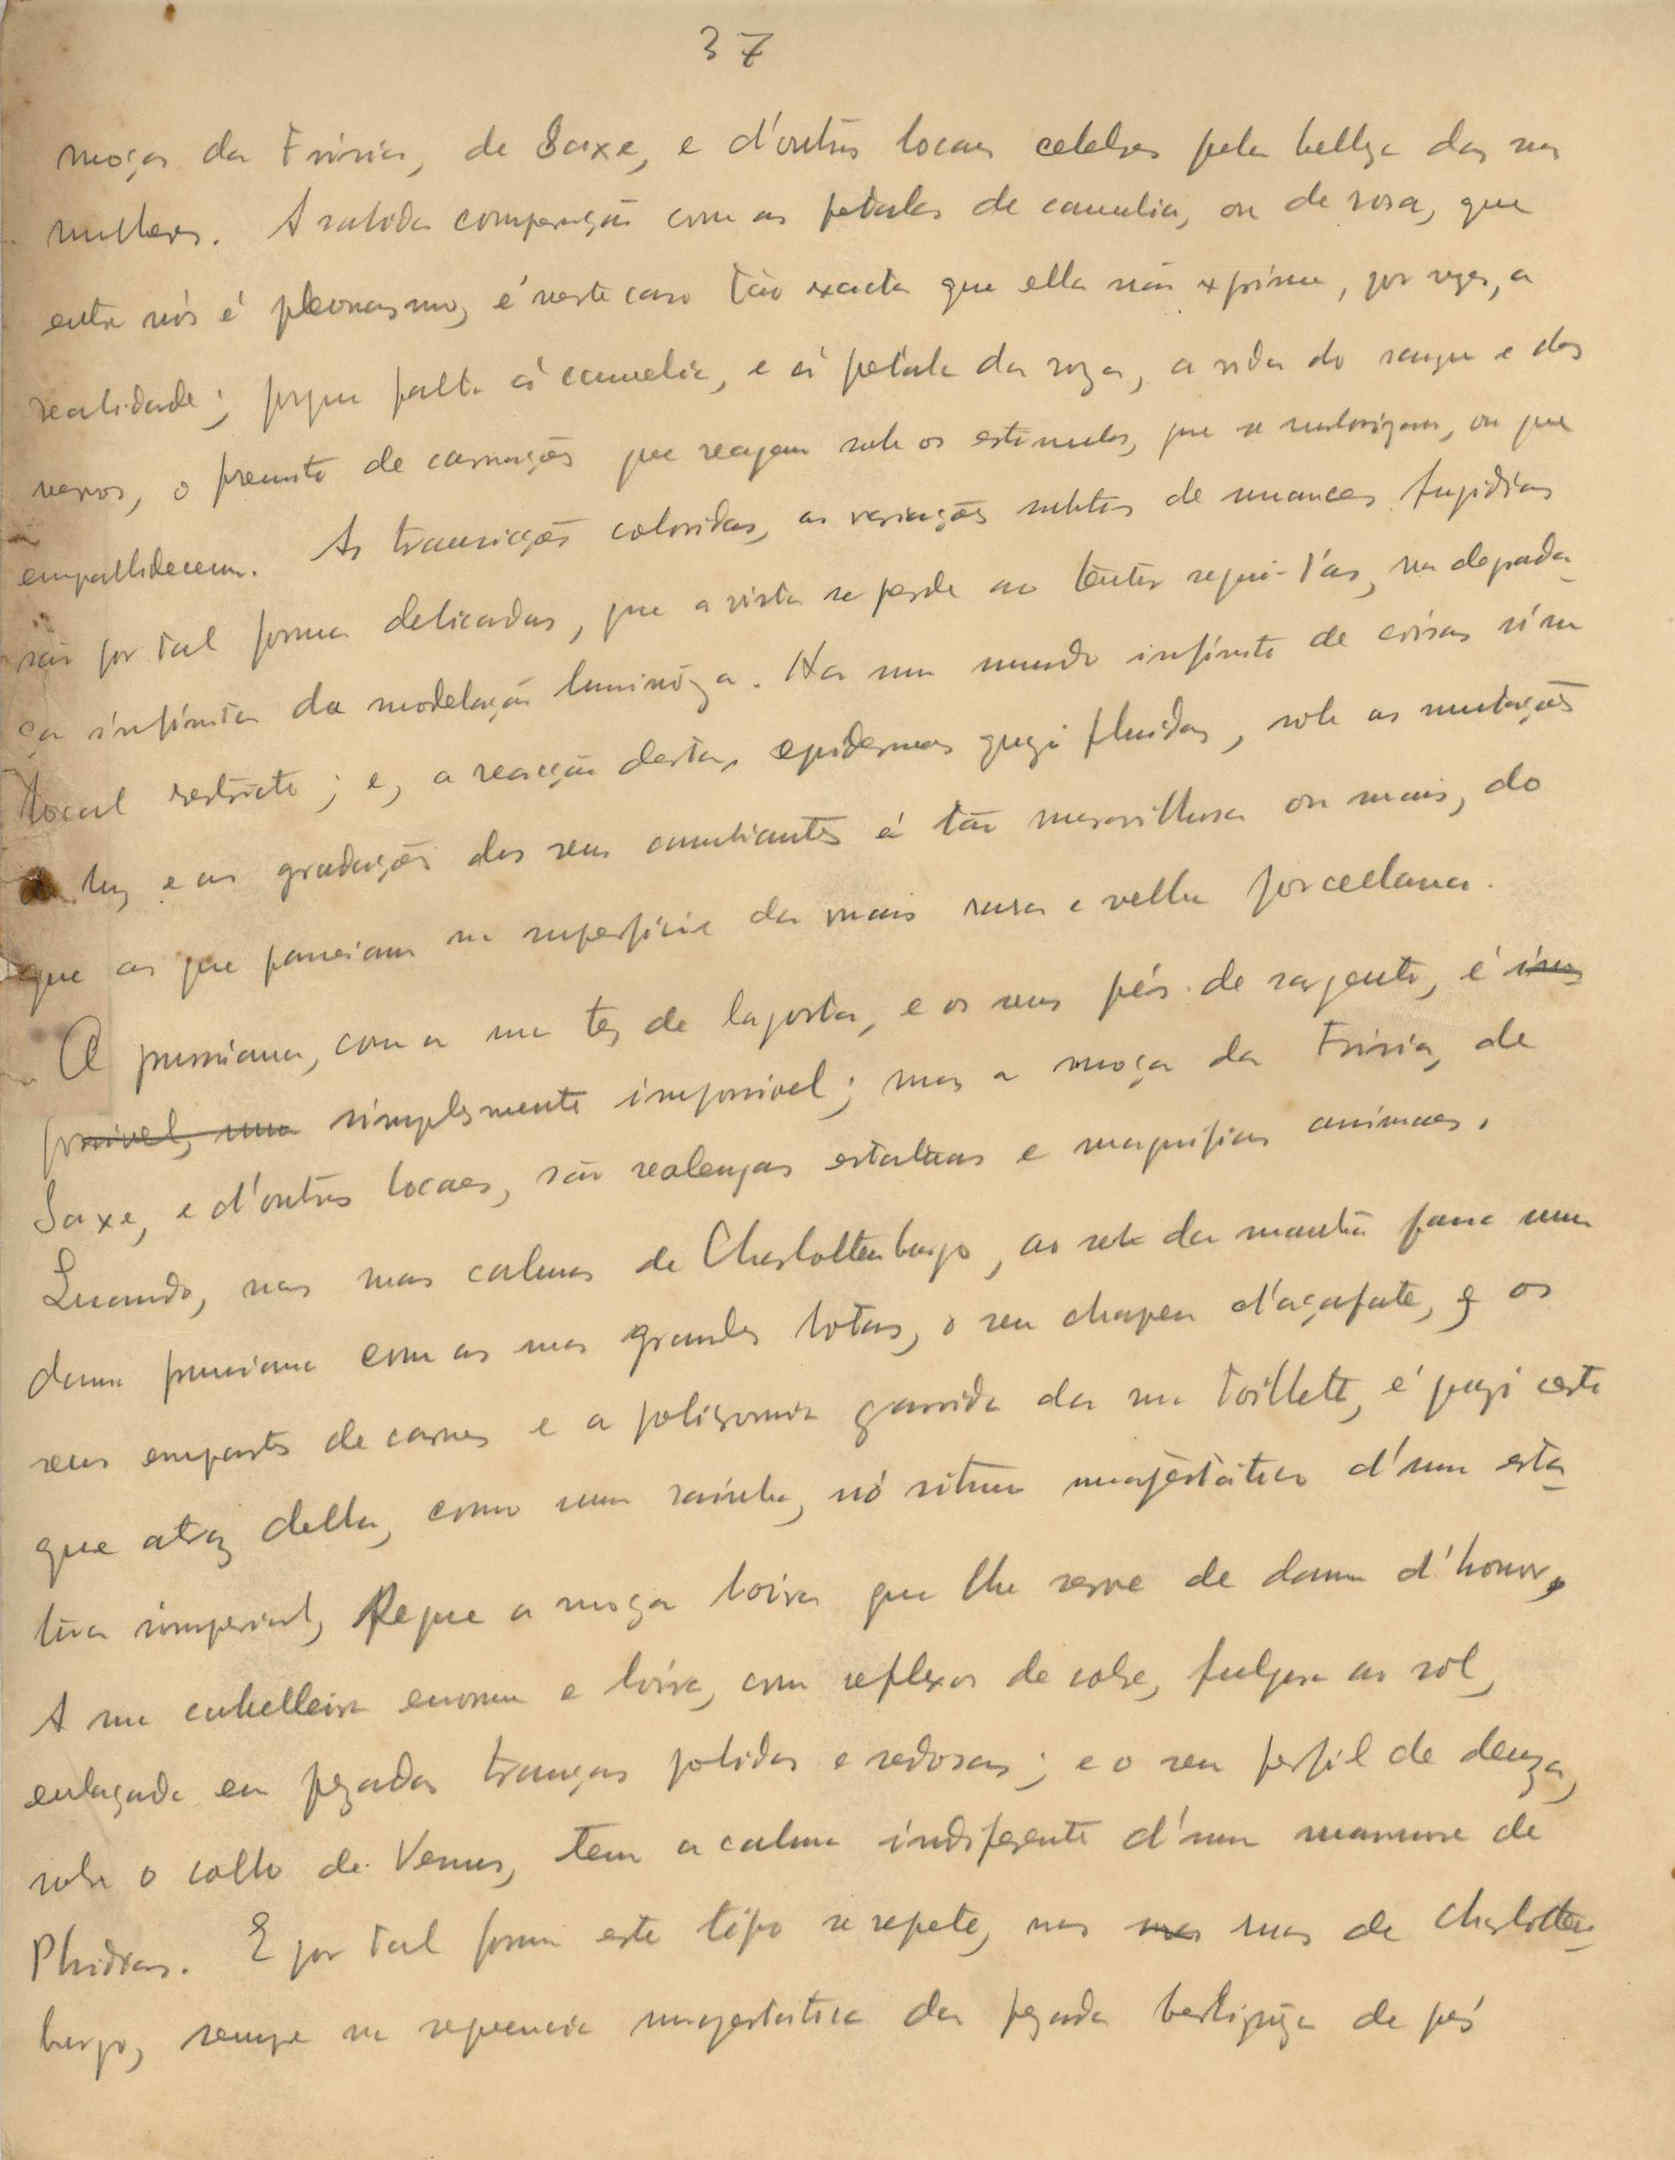 37
moças da Frisia, de Saxe, e d'outros locaes celebres pela belleza das suas
mulheres. A sabida comparação com as petalas de camelia, ou de rosa, que
entre nós é pleonasmo, é neste caso tão exacta que ella não exprime, por vezes, a
realidade; porque falta á camelia, e á petala da roza, a vida do sangue e dos
nervos, o fremito de carnações que reagem sob os estimulos, que se ruborizam, ou que
empallidecem. As transicções coloridas, as variações subtis de nuances fugidias
são por tal forma delicadas, que a vista se perde ao tentar segui-l'as, na degrada-
ção infinita da modelação luminóza. Ha um mundo infinito de coisas n'um
local restricto; e, a reacção destas epidermes quazi fluidas, sob as mutações
da luz e as gradações dos seus cambiantes é tão maravilhosa ou mais, do
que as que passeiam na superficie da mais rara e velha porcellana.
A prussiana, com a sua tez de lagosta, e os seus pés de sargento, é im
possivel, uma simplesmente impossivel; mas a moça da Frisia, de
Saxe, e d'outros locaes, são realengas estatuas e magnificos animaes.
Quando, nas ruas calmas de Charlottenburgo, ao sol da manhã passa uma
dama prussiana com as suas grandes botas, o seu chapeu d'açafate, e os
seus empastes de carnes e a policromia garrida da sua toillette, é quazi certo
que atraz della, como uma rainha, nó ritmo magestatico d'uma esta-
tua imperial, segue a moça loira que lhe serve de dama d'honor,
A sua cabelleira enorme e loira, com reflexos de cobre, fulgura ao sol,
enlaçada em pezadas tranças polidas e sedosas; e o seu perfil de deuza,
sobre o collo de Venus, tem a calma indiferente d'um marmore de
Phidias. E por tal forma este tipo se repete, nas ruas ruas de Charlotten-
burgo, sempre na sequencia magestatica da pezada bestigoiça de pés